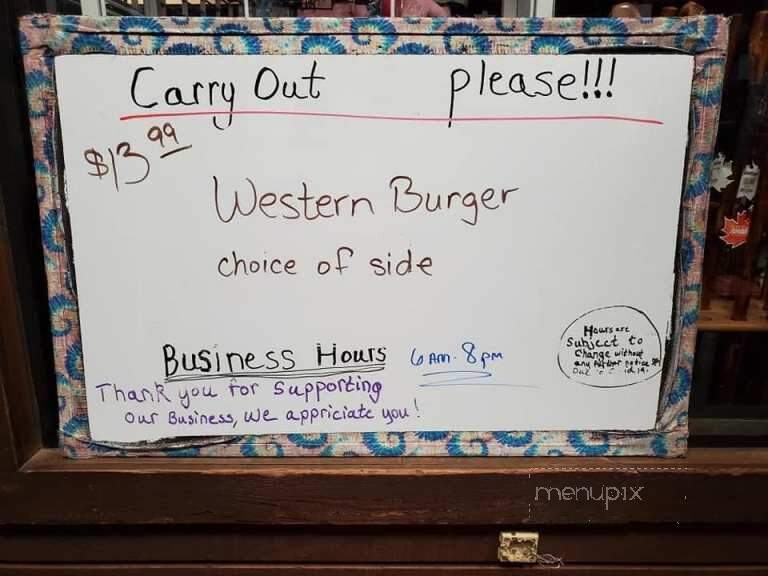 Carry Out please!!!
$13.99
Western Burger
choice of side
Business Hours 6 AM - 8 pm
Thank you for Supporting
Our Business, We appriciate you!
Hours are
Subject to
Change without
any further notice
menupix